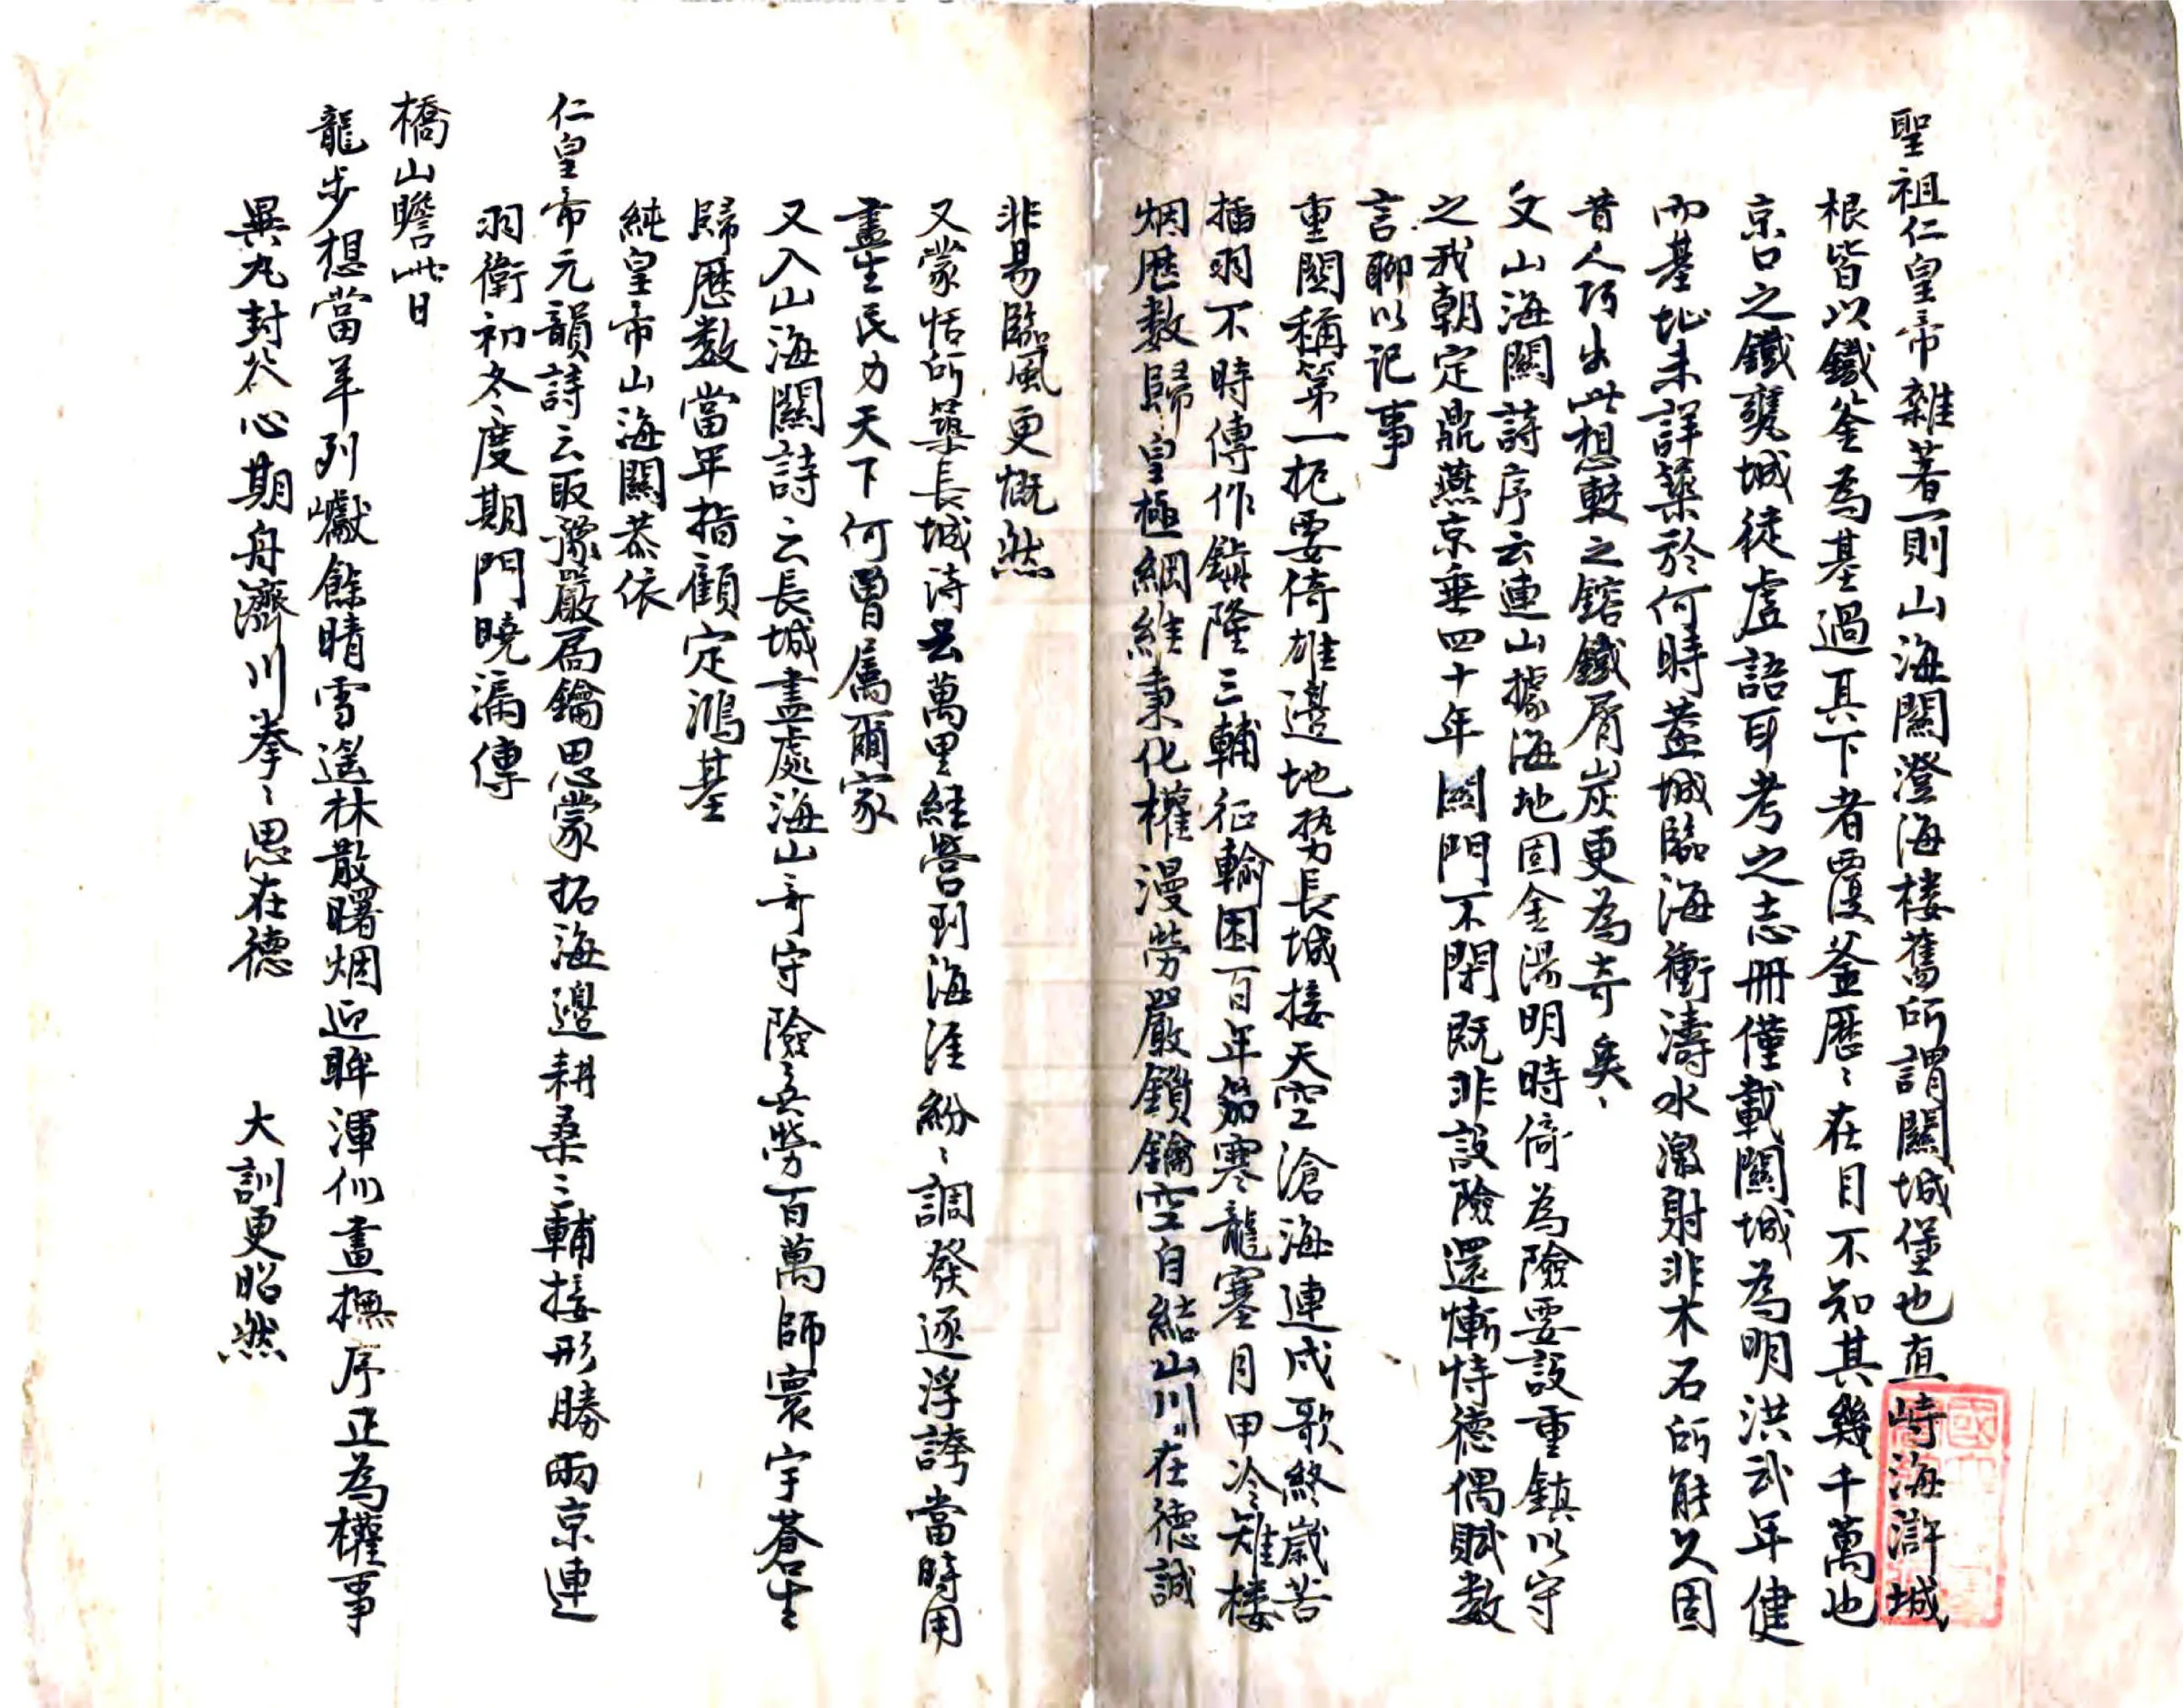 聖祖仁皇帝雜著一則山海關澄海樓舊所謂關城堡也直峙海滸城
根皆以鐵釜為基過其下者覆釜歷〻在目不知其幾千萬也
京口之鐵甕城徒虛語耳考之志冊僅載關城為明洪武年健
而基址未詳築於何時蓋城臨海衝濤水激射非木石所能久固
昔人巧出此想較之鎔鐵屑炭更為奇矣
又山海關詩序云連山據海地固金湯明時倚為險要設重鎮以守
之我朝定鼎燕京垂四十年關門不閉既非設險還慚恃德偶賦數
言聊以記事
重關稱第一扼要倚雄邊地勢長城接天空滄海連戍歌終歲苦
插羽不時傳作鎮隆三輔征輸困百年笳寒龍塞月甲冷雉樓
烟歷數歸皇極綱維秉化權漫勞嚴鎖鑰空自結山川〻在德誠
非易臨風更慨然
又蒙恬所築長城詩云萬里經營到海涯紛〻調發逐浮誇當時用
盡生民力天下何曾屬爾家
又入山海關詩云長城盡處海山奇守險〻無勞百萬師寰宇蒼生
歸歷數當年指顧定鴻基
純皇帝山海關恭依
仁皇帝元韻詩云取豫嚴扃鑰思蒙拓海邊耕桑三輔接形勝兩京連
羽衛初冬度期門曉漏傳
橋山瞻此日
龍步想當年列巘餘晴雪遙林散曙烟迎眸渾似畫撫序正為權事
異丸封谷心期舟濟川拳〻思在德　大訓更昭然